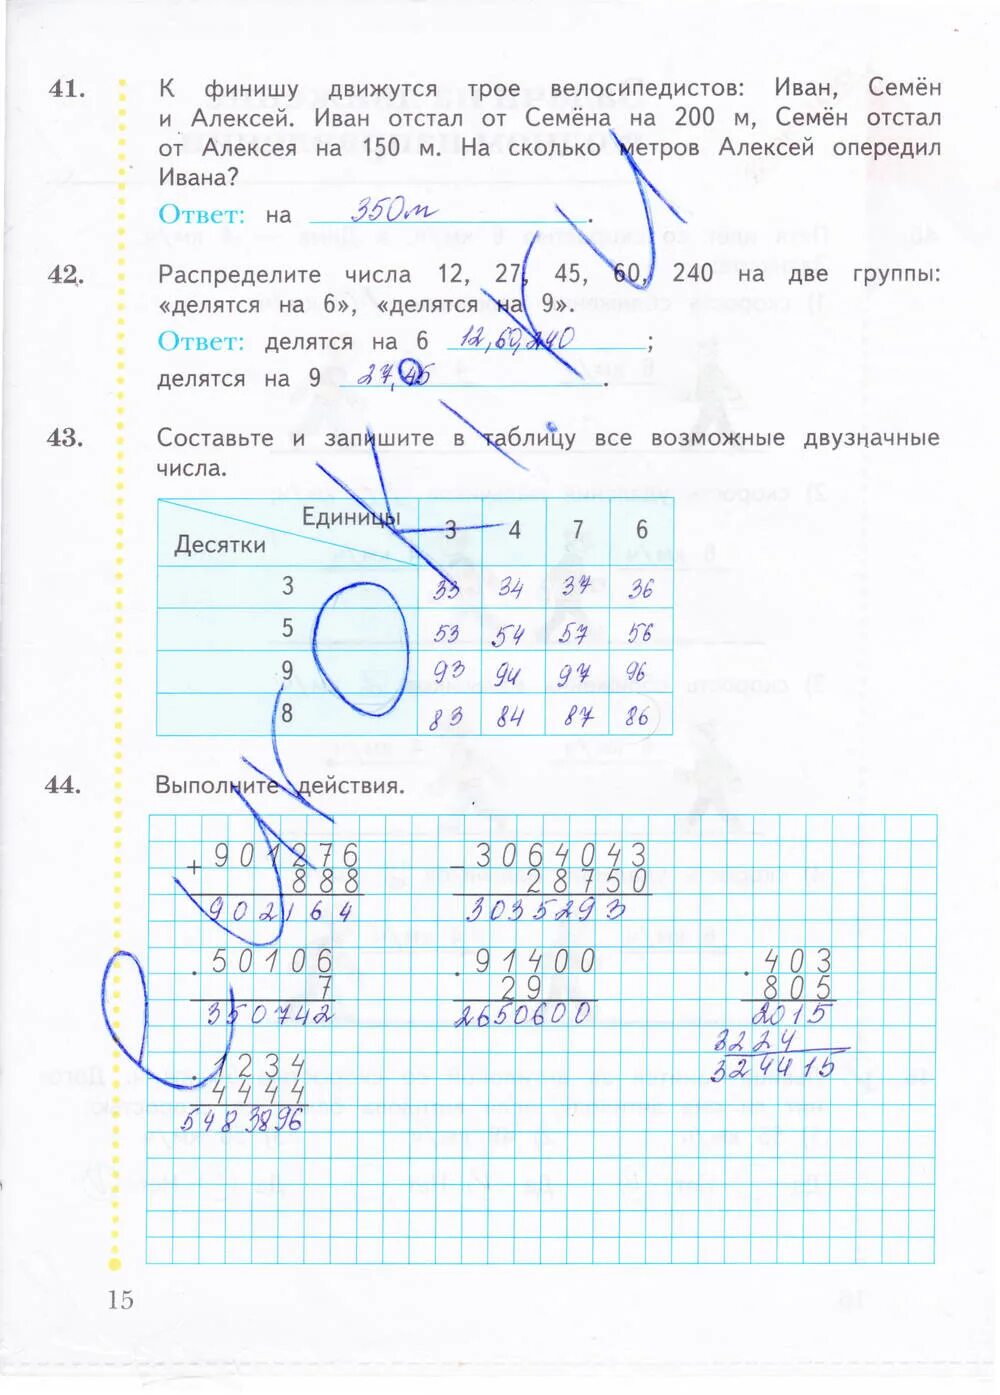 41. К финишу движутся трое велосипедистов: Иван, Семён
и Алексей. Иван отстал от Семёна на 200 м, Семён отстал
от Алексея на 150 м. На сколько метров Алексей опередил
Ивана?
Ответ: на 350м.
42. Распределите числа 12, 27, 45, 60, 240 на две группы:
«делятся на 6», «делятся на 9».
Ответ: делятся на 6 12, 60, 240;
делятся на 9 27, 45.
43. Составьте и запишите в таблицу все возможные двузначные
числа.
Единицы
Десятки 3 4 7 6
3 33 34 37 36
5 53 54 57 56
9 93 94 97 96
8 83 84 87 86
44. Выполните действия.
+ 901276 - 3064043
888 28750
902164 3035293
. 50106 . 91400 . 403
7 29 805
350742 2650600 2015
3224
. 1234 324415
4444
5483896
15
euroki.ru